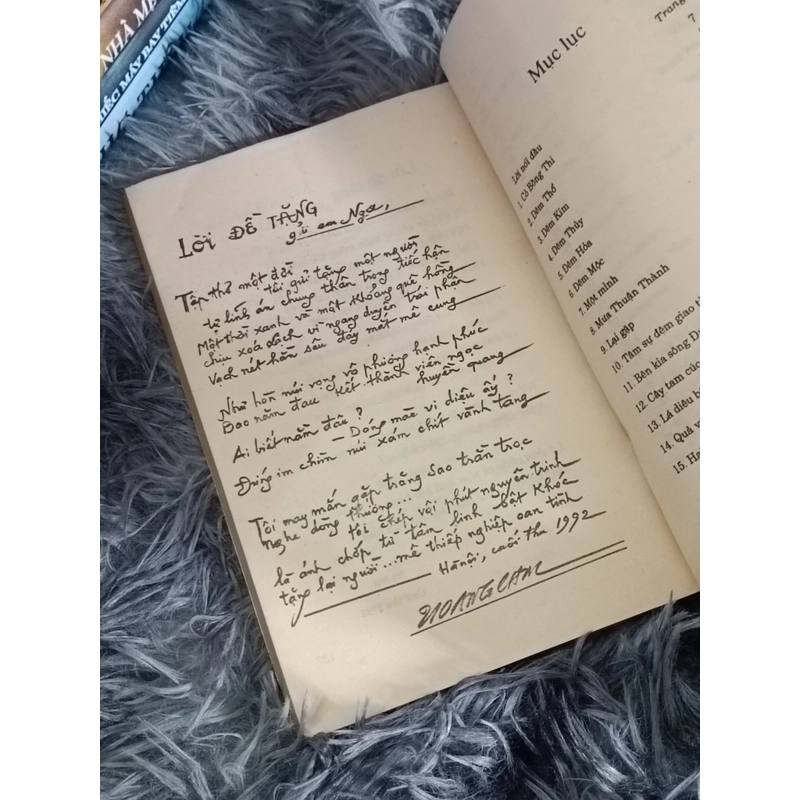 NHÀ MẸ
MÁY BAY TIÊM
LỜI ĐỀ TẶNG
gửi em Nga,
Tập thơ một đời tôi gửi tặng một người
tự lĩnh án chung thân trong tiếc hận
Một trời xanh và mật khoáng quê hồng
chịu xoá lịch vì ngang duyên trái phận
Vạch nét hằn sâu đáy mắt mê cung
Như hòn núi vọng vô phương hạnh phúc
Bao năm đau kết thành viên ngọc huyền quang
Ai biết nằm đâu? – Dáng mác vi diệu ấy?
Đứng im chìm núi xám chít vành tang
Tôi may mắn gặp trăng sao trằn trọc
Nghe dông thường... tôi chép vội phút nguyên trinh
là ánh chớp từ tâm linh bật khóc
tặng lại người... mê thiếp nghiệp oan tình
Hà nội, cuối thu 1992
HOANGCAM
Mục lục
Trang
7
Lời nói đầu
1. Cô Bồng Thi
2. Đêm Thổ
3. Đêm Kim
4. Đêm Thủy
5. Đêm Hỏa
6. Đêm Mộc
7. Một mình
8. Mưa Thuận Thành
9. Lại gặp
10. Tâm sự đêm giao t
11. Bên kia sông Đu
12. Cây tam cúc
13. Lá diêu b
14. Quả v
15. Ha